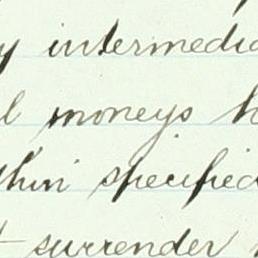 y intermedia
l moneys h
thin specified
t surrender